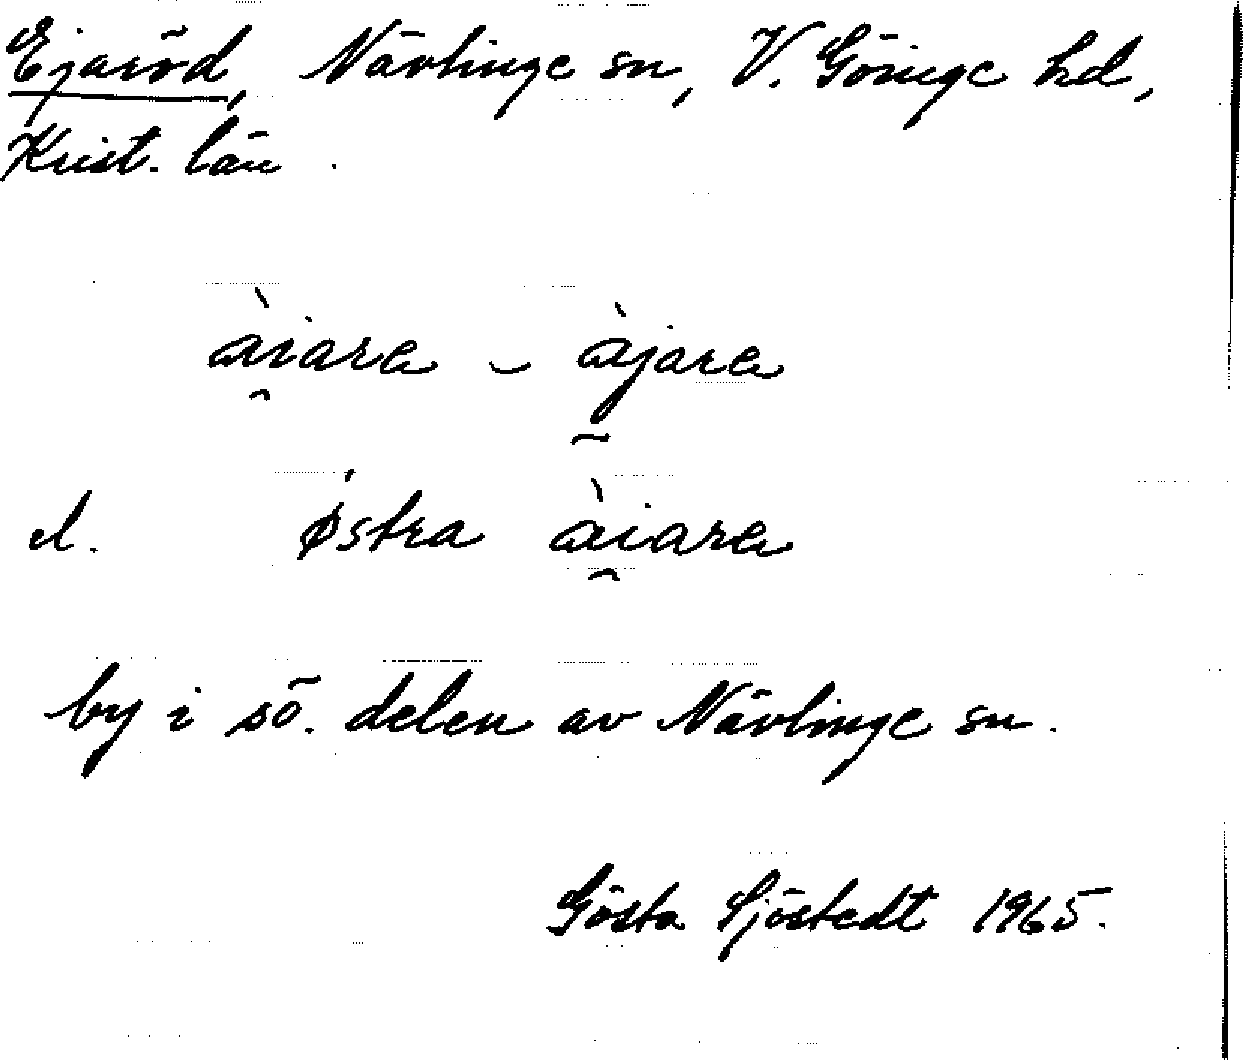 Ejaröd, Nävlinge sn, V. Göinge hd,
Krist. län.
ài̯ara - àjara
el. østra ài̯ara
by i sö. delen av Nävlinge sn.
Gösta Sjöstedt 1965.